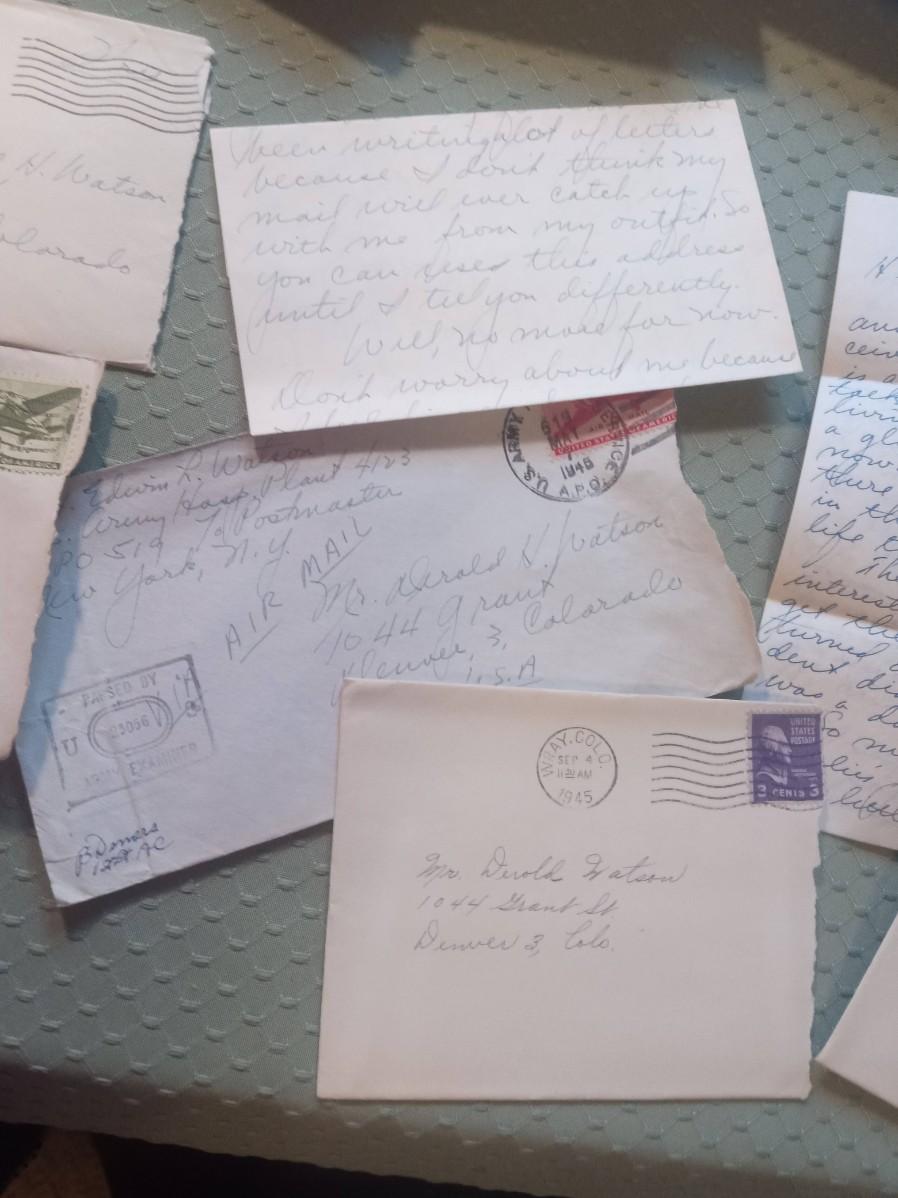 H. Watson
Colorado
OF AMERICA
been writing alot of letters
because I don't think my
mail will ever catch up
with me from my outfit. So
you can uses this address
until I tell you differently.
Well, no more for now.
Don't worry about me because
Edwin L. Watson
Army Hosp. Plant 4123
PO 519 % Postmaster
New York, N.Y.
AIR MAIL
U.S. ARMY
A.P.O.
UNITED STATES OF AMERICA
Mr. Derold H. Watson
1044 Grant
Denver, 3, Colorado
U.S.A
PASSED BY
U
23056
ARMY EXAMINER
WRAY, COLO.
SEP 4
11 30 AM
1945
UNITED
STATES
POSTAGE
3 CENTS 3
Mr. Derold Watson
1044 Grant St.
Denver 3, Colo.
H
and
ceiv
is a
liv
a gl
now
there
in th
life
The
interest
get the
turned
dent di
was a d
So m